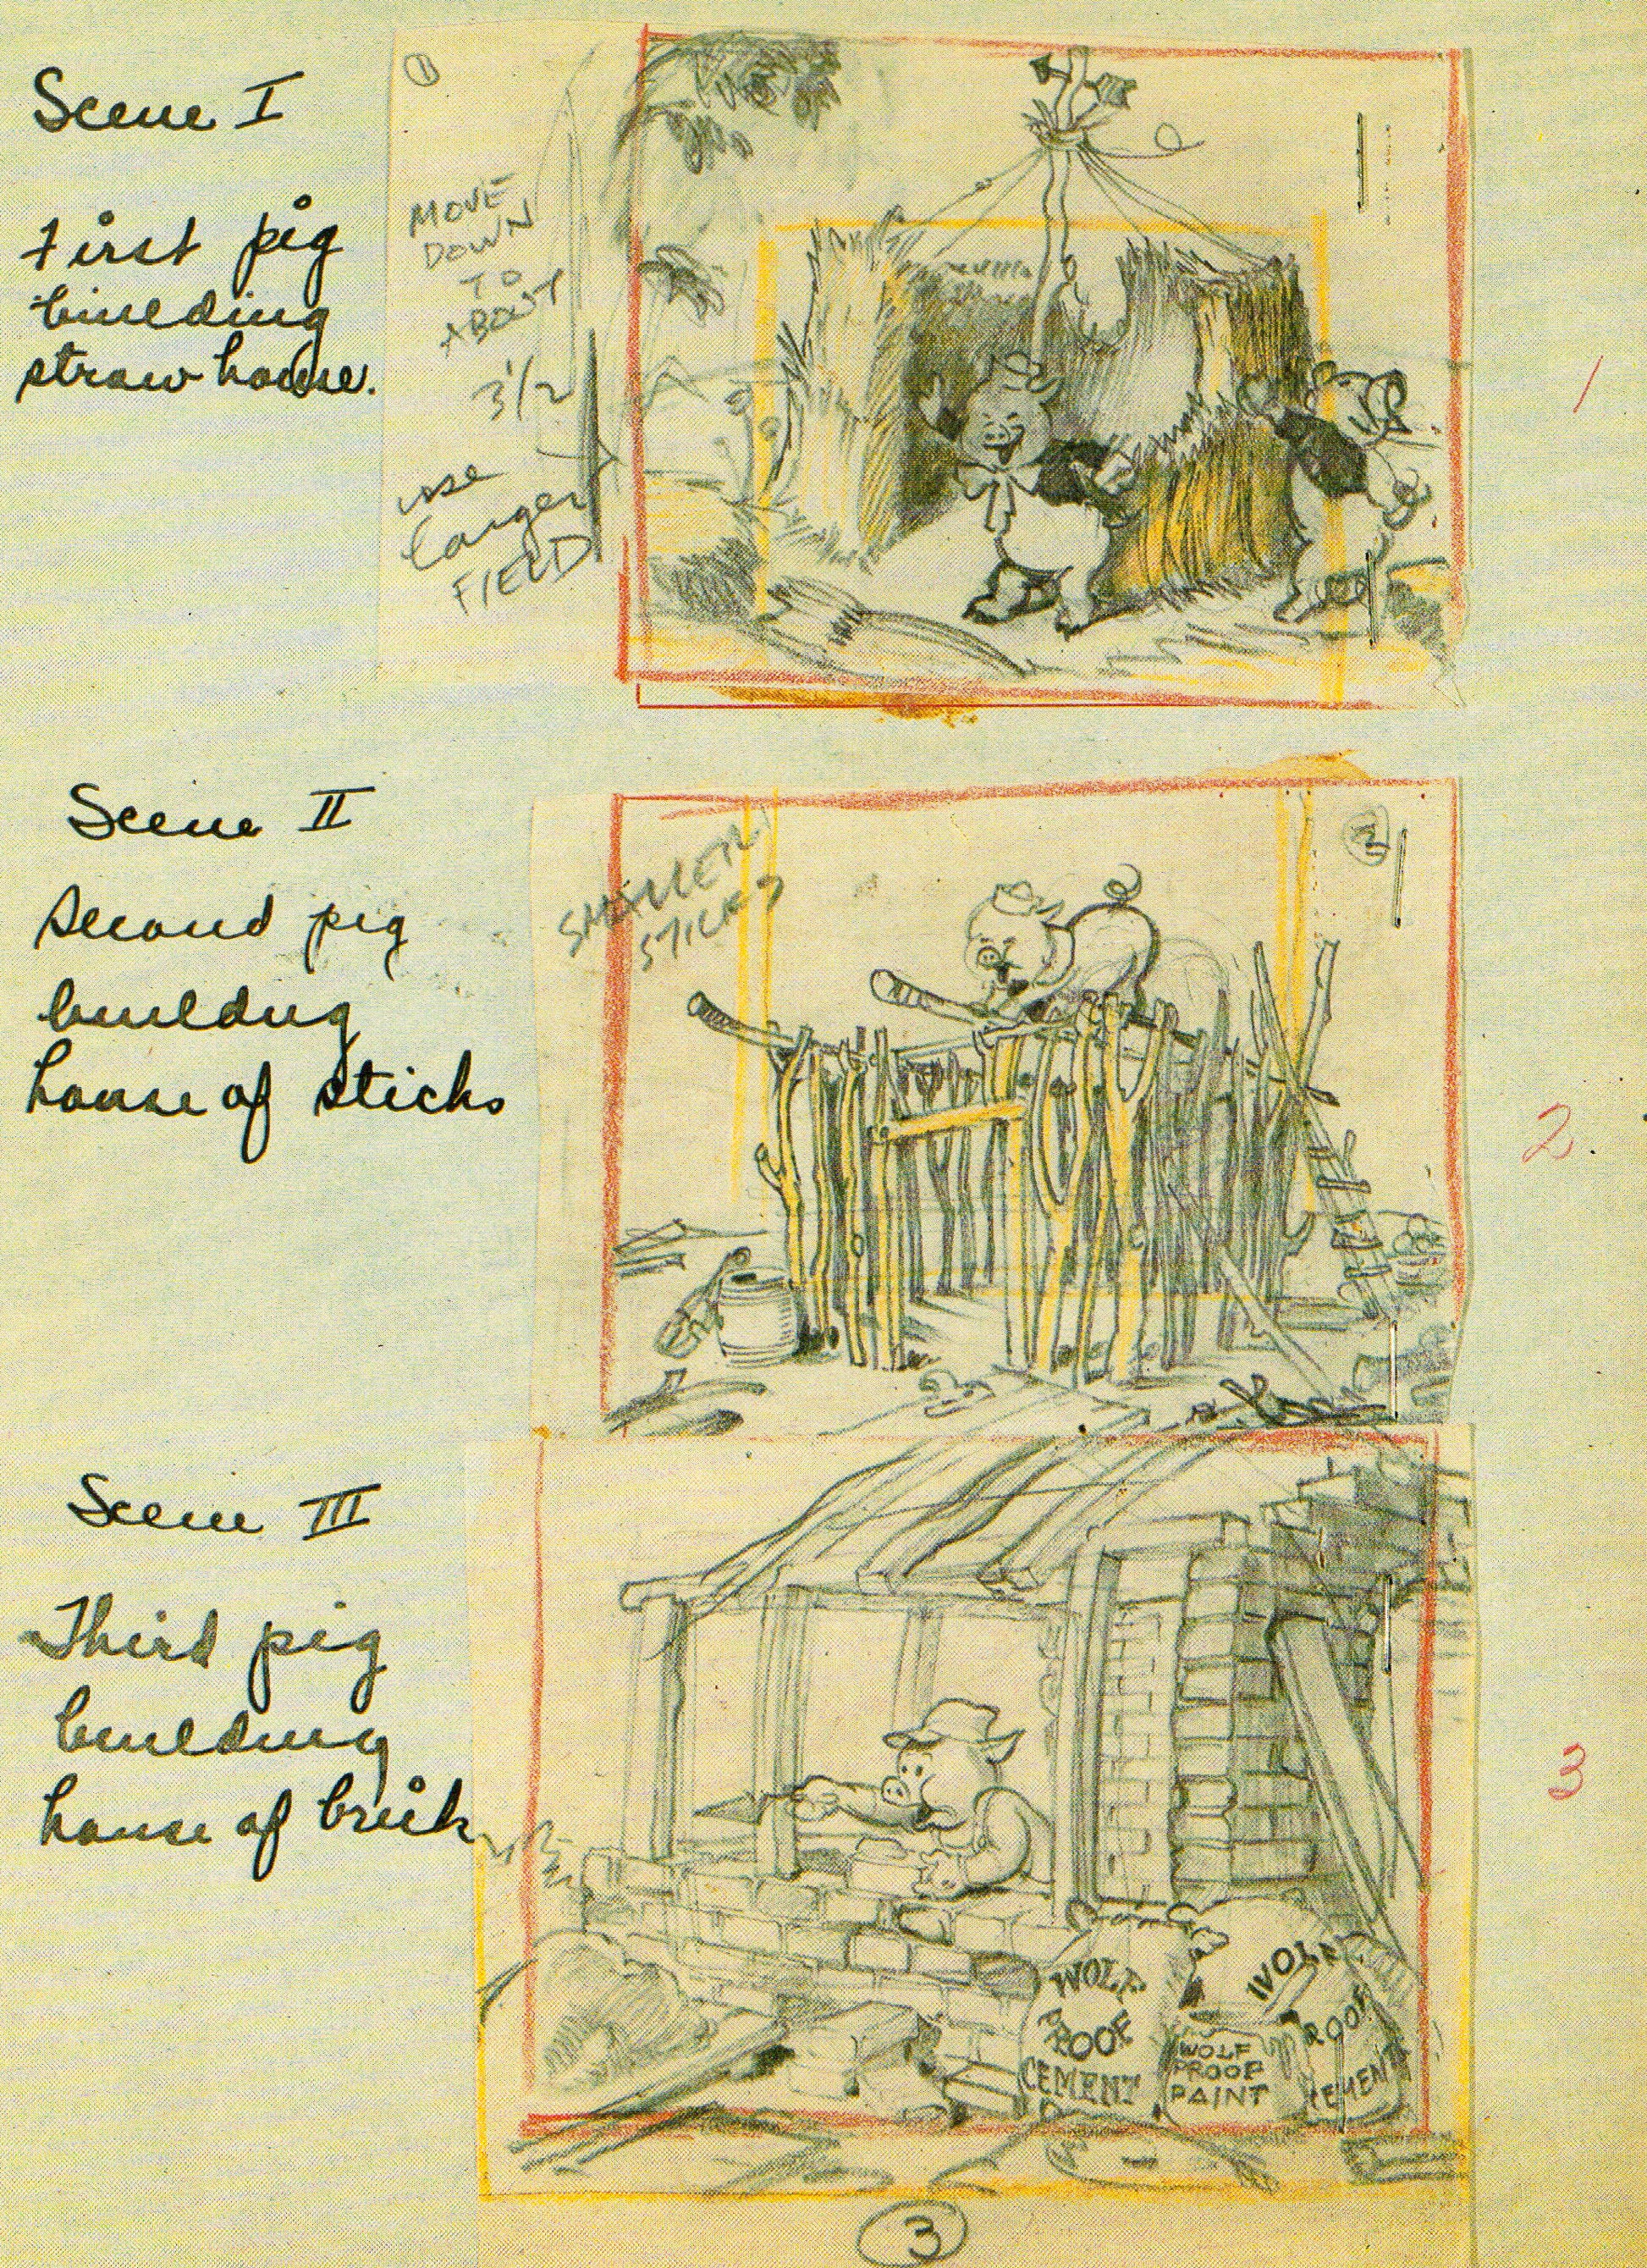 Scene I
1
first pig
building
straw house.
MOVE
DOWN
TO
ABOUT
3 1/2
use
larger
FIELD
1
Scene II
second pig
building
house of sticks
SMALLER
STICKS
2
2
Scene III
Third pig
building
house of brick
WOLF
PROOF
CEMENT
WOLF
PROOF
PAINT
WOLF
PROOF
CEMENT
3
3